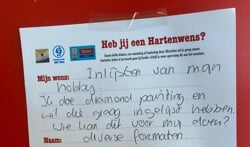 Heb jij een Hartenwens?
Mijn wens: Inlijsten van mijn
hobby.
Ik doe diamond painting en
wil die graag ingelijst hebben.
Wie kan dit voor mij doen?
Naam: diverse formaten